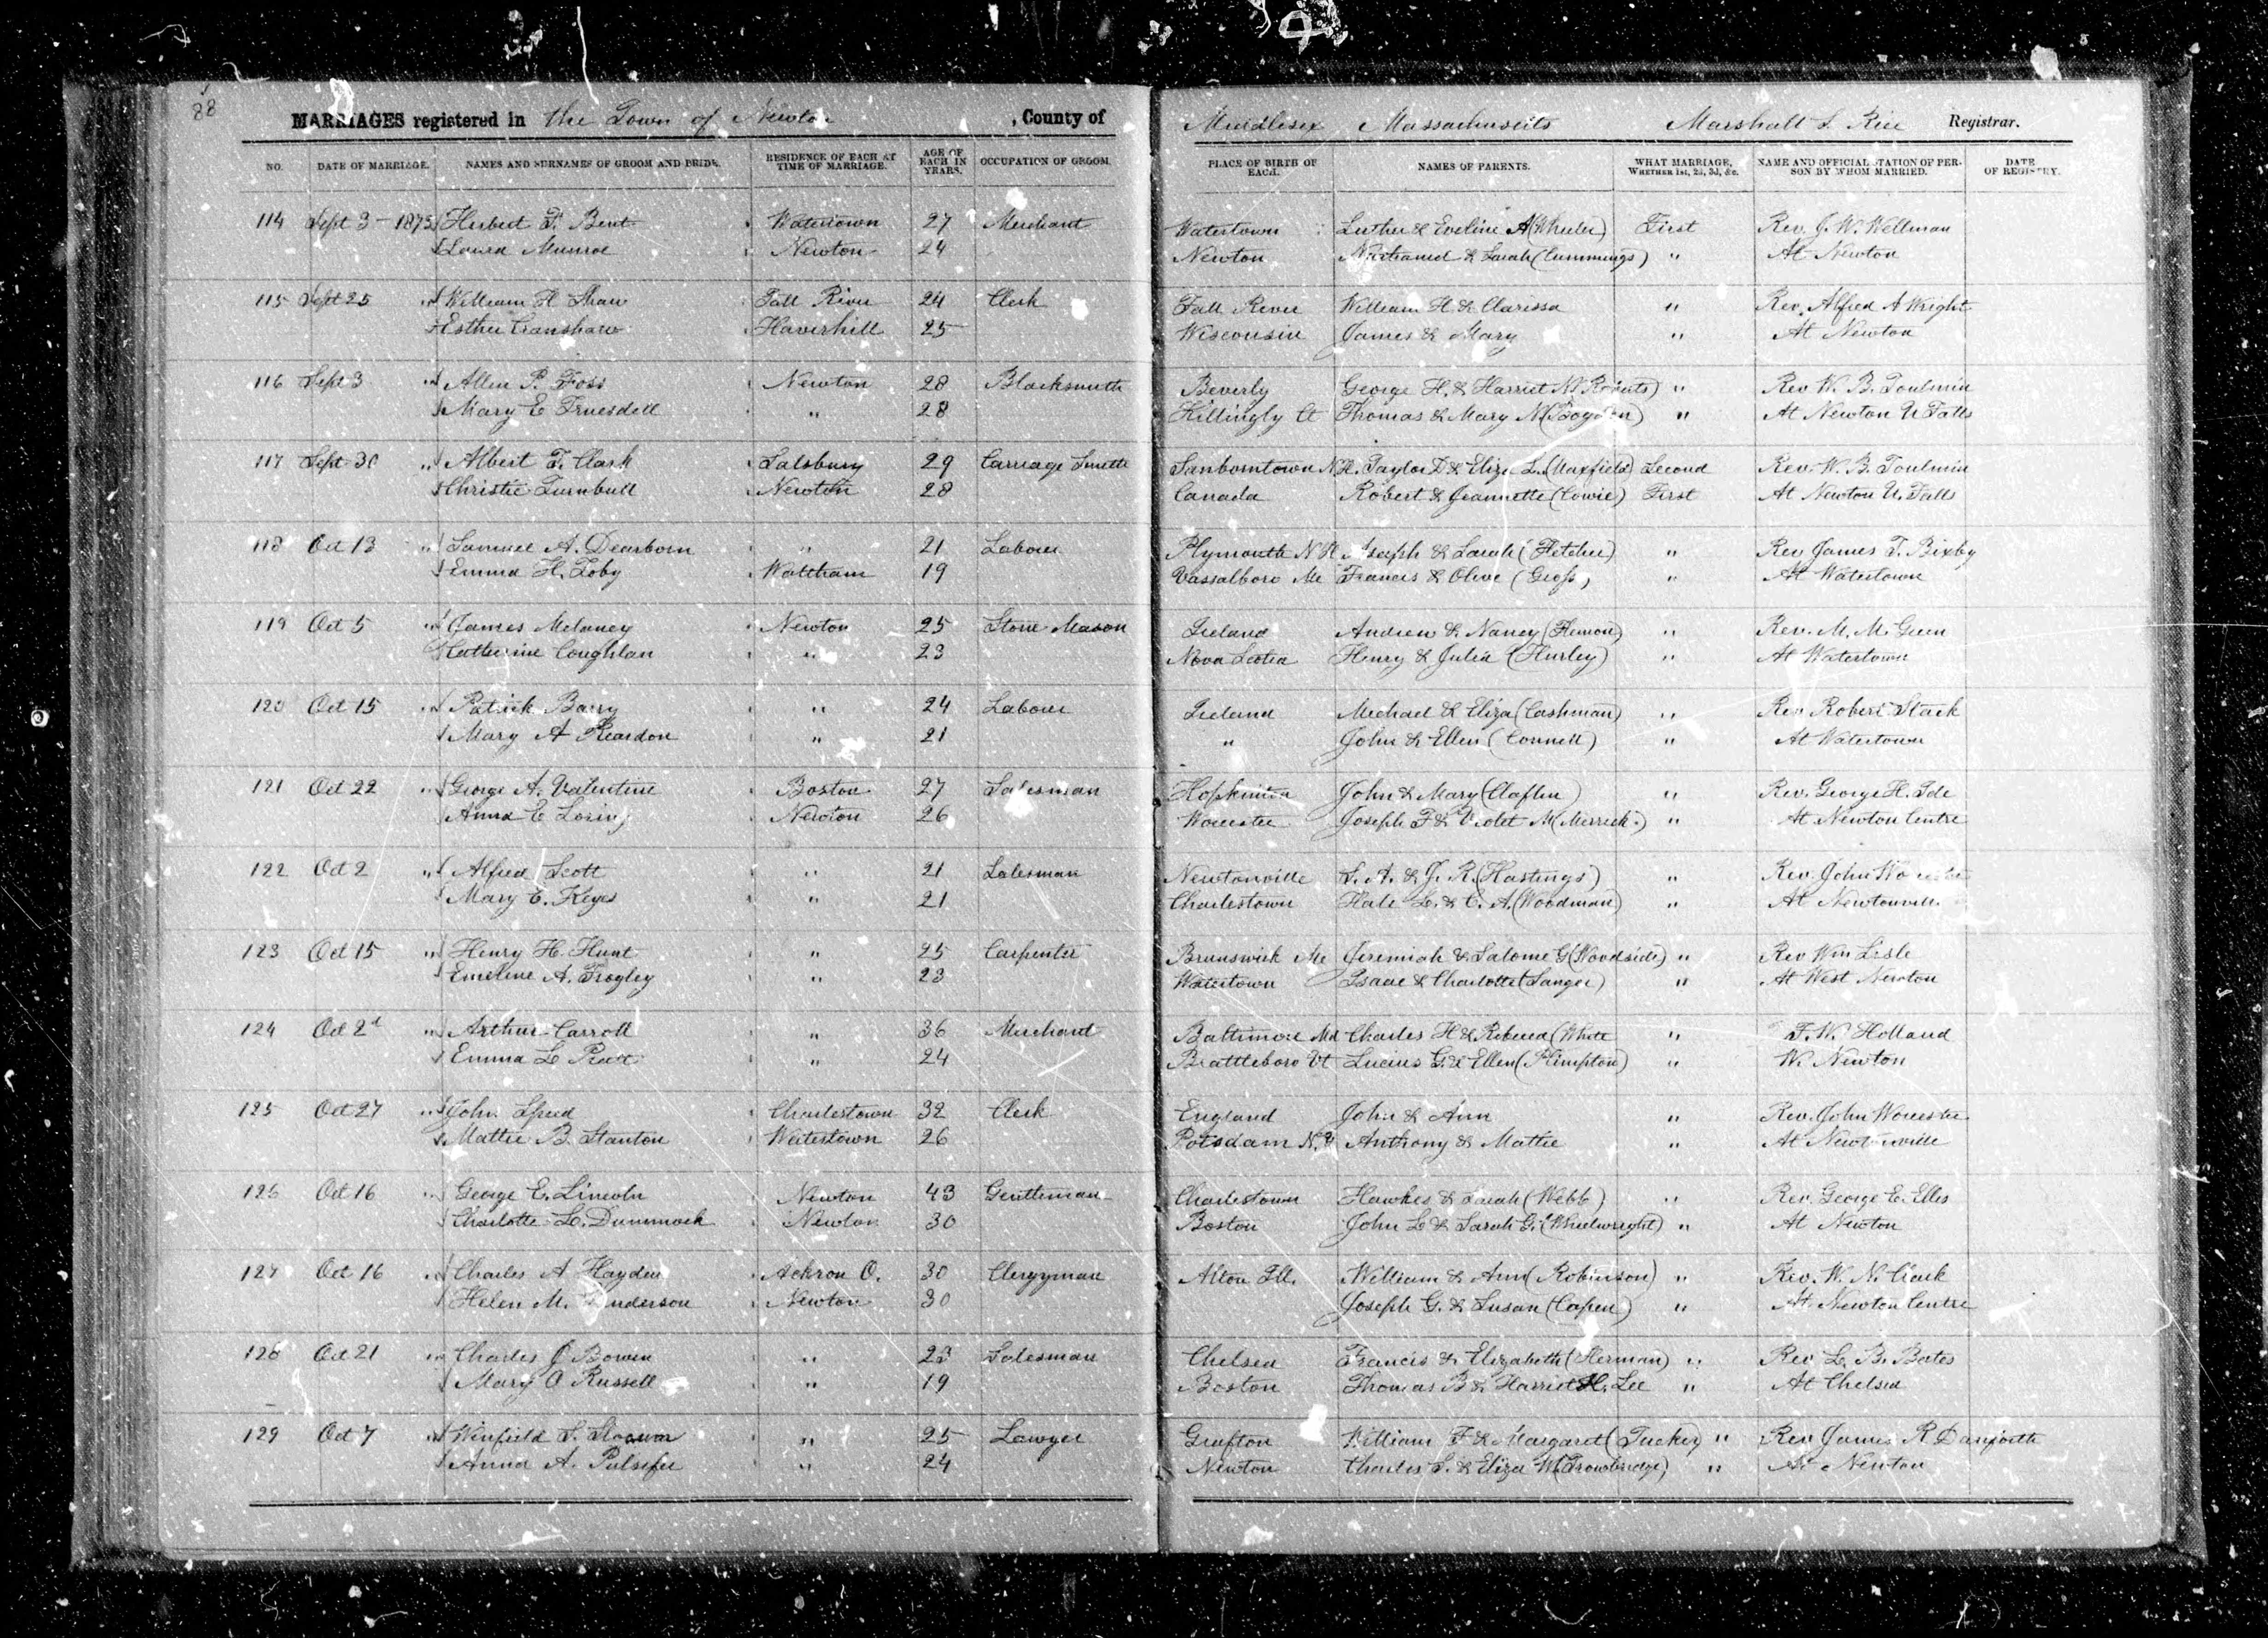 88
MARRIAGES registered in the Town of Newton, County of Middlesex Massachusetts Marshall S. Rice Registrar.
NO. DATE OF MARRIAGE. NAMES AND SURNAMES OF GROOM AND BRIDE. RESIDENCE OF EACH AT TIME OF MARRIAGE. AGE OF EACH IN YEARS. OCCUPATION OF GROOM. PLACE OF BIRTH OF EACH. NAMES OF PARENTS. WHAT MARRIAGE, WHETHER 1st, 2d, 3d, &c. NAME AND OFFICIAL STATION OF PERSON BY WHOM MARRIED. DATE OF REGISTRY.
114 Sept 3 - 1873 Herbert F. Bent Watertown 27 Merchant Watertown Luther & Eveline A (Wheeler) First Rev. J. W. Wellman
Laura Munroe Newton 24 Newton Nathaniel & Sarah (Cummings) " At Newton
115 Sept 25 " William H Shaw Fall River 24 Clerk Fall River William H. & Clarissa " Rev. Alfred A Wright
Esther Cranshaw Haverhill 25 Wisconsin James & Mary " At Newton
116 Sept 3 " Allen P. Foss Newton 28 Blacksmith Beverly George H. & Harriet N (Roberts) " Rev W. B. Toulmin
Mary E Truesdell " 28 Killingly Ct Thomas & Mary M (Boyden) " At Newton U Falls
117 Sept 30 " Albert F. Clark Salsbury 29 Carriage Smith Sanborntown N.H. Taylor D & Eliza L. (Maxfield) Second Rev. W. B. Toulmin
Christie Turnbull Newton 28 Canada Robert & Jeannette (Cowie) First At Newton U. Falls
118 Oct 13 " Samuel A. Dearborn " 21 Laborer Plymouth N H Joseph & Sarah (Fletcher) " Rev James T. Bixby
Emma H. Toby Waltham 19 Vassalboro Me Francis & Olive (Gross) " At Watertown
119 Oct 5 " James Melaney Newton 25 Stone Mason Ireland Andrew & Nancy " Rev. M. M. Green
Catherine Coughlan " 23 Nova Scotia Henry & Julia (Hurley) " At Watertown
120 Oct 15 " Patrick Barry " 24 Laborer Ireland Michael & Eliza (Cashman) " Rev Robert Stack
Mary A Reardon " 21 " John & Ellen (Connell) " At Watertown
121 Oct 22 " George A. Valentine Boston 27 Salesman Hopkinton John & Mary (Claflin) " Rev. George H. Ide
Anna E Loring Newton 26 Worcester Joseph F & Violet M (Merrick) " At Newton Centre
122 Oct 2 " Alfred Scott " 21 Salesman Newtonville S. A. & J. R. (Hastings) " Rev. John Worcester
Mary E. Keyes " 21 Charlestown Hale L. & C. A. (Woodman) " At Newtonville
123 Oct 15 " Henry H. Hunt " 25 Carpenter Brunswick Me Jeremiah & Salome G (Woodside) " Rev Wm Lisle
Emeline A. Trogley " 23 Watertown Isaac & Charlotte (Sanger) " At West Newton
124 Oct 2d " Arthur Carroll " 36 Merchant Baltimore Md Charles H & Rebecca (White " F. W. Holland
Emma L Pratt " 24 Brattleboro Vt Lucius G. & Ellen (Plimpton) " W. Newton
125 Oct 27 " John Speed Charlestown 32 Clerk England John & Ann " Rev. John Worcester
Mattie B. Stanton Watertown 26 Potsdam N.Y. Anthony & Mattie " At Newtonville
126 Oct 16 " George E. Lincoln Newton 43 Gentleman Charlestown Hawkes & Sarah (Webb) " Rev. George E. Ellis
Charlotte L. Dimmock Newton 30 Boston John L & Sarah G. (Wheelwright) " At Newton
127 Oct 16 " Charles A Hayden Ackron O. 30 Clergyman Alton Ill. William & Ann (Robinson) " Rev. W. N. Clark
Helen M. Anderson Newton 30 Joseph G. & Susan (Capen) " At Newton Centre
128 Oct 21 " Charles J Bowen " 23 Salesman Chelsea Francis & Elizabeth (Herman) " Rev L. B. Bates
Mary O Russell " 19 Boston Thomas B & Harriet H. Lee " At Chelsea
129 Oct 7 " Winfield S. Slocum " 25 Lawyer Grafton William F & Margaret (Tucker) " Rev James R Danforth
Anna A. Pulsifer " 24 Newton Charles S. & Eliza W (Trowbridge) " At Newton